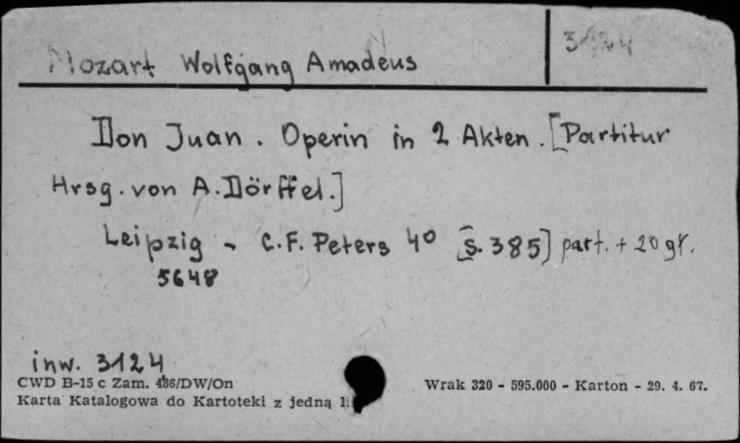 Mozart Wolfgang Amadeus 3124
Don Juan. Operin in 2 Akten. [Partitur
Hrsg. von A. Dörffel.]
Leipzig - C.F. Peters 4º [S. 385] part. + 20 gł.
5648
inw. 3124
CWD B-15 c Zam. 486/DW/On
Karta Katalogowa do Kartoteki z jedną
Wrak 320 - 595.000 - Karton - 29. 4. 67.